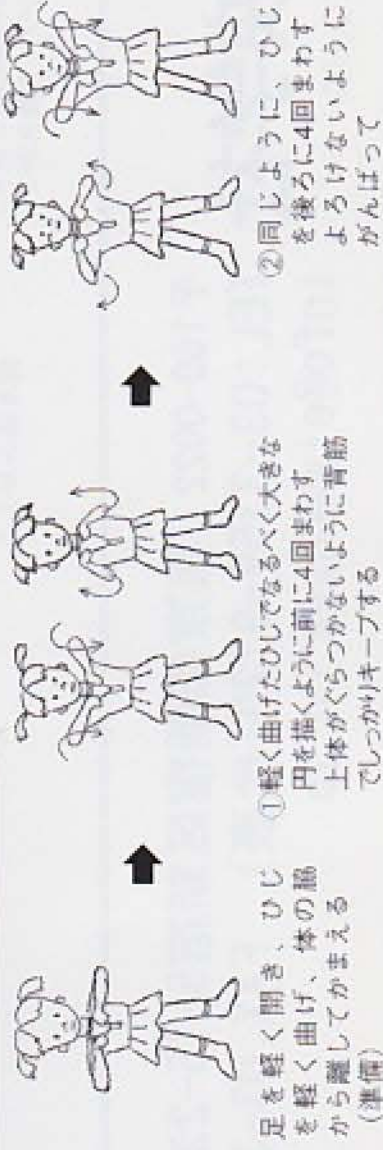 足を軽く開き、ひじ
を軽く曲げ、体の脇
から離してかまえる
(準備)
①軽く曲げたひじでなるべく大きな
円を描くように前に4回まわす
上体がぐらつかないように背筋
でしっかりキープする
②同じように、ひじ
を後ろに4回まわす
よろけないように
がんばって